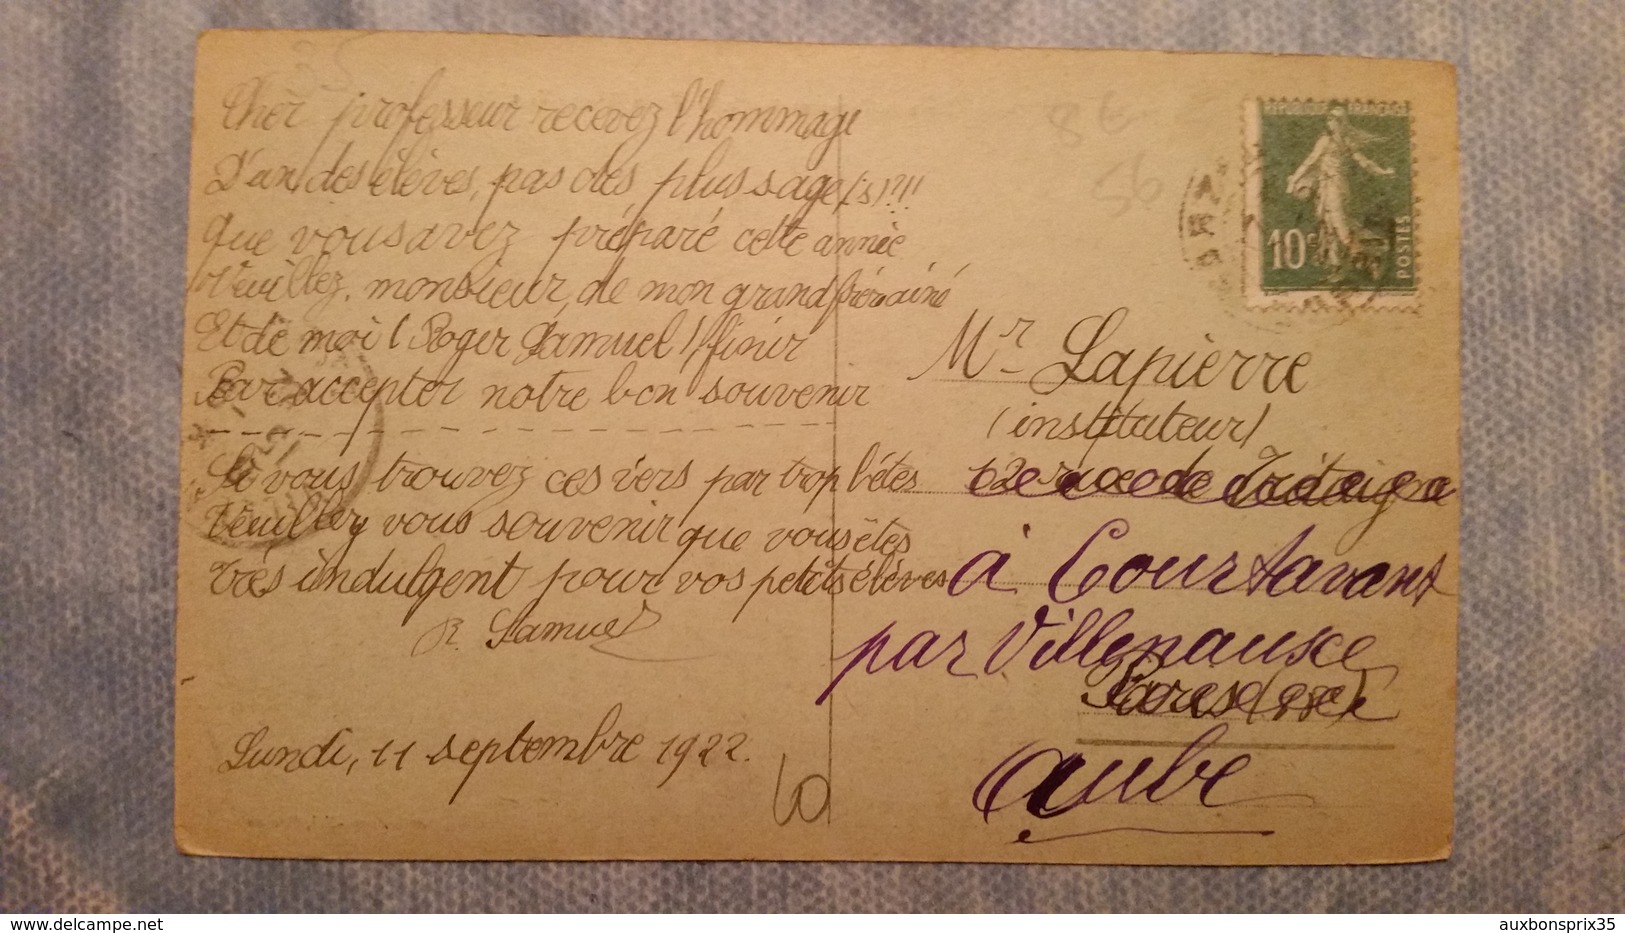 Cher professeur recevez l'hommage
D'un des élèves, pas des plus sage(s)!!!
Que vous avez préparé cette année
Veuillez, monsieur, de mon grand frère ainé
Et de moi (Roger Samuel) finir
Par accepter notre bon souvenir
Si vous trouvez ces vers par trop bêtes
Veuillez vous souvenir que vous êtes
Très indulgent pour vos petits élèves
R. Samuel
Lundi, 11 septembre 1922.
86
56
10c
POSTES
Mr Lapierre
(instituteur)
12 rue de
à Courtavant
par Villenauxe
Paris (18e)
Aube
10
delcampe.net
auxbonsprix35